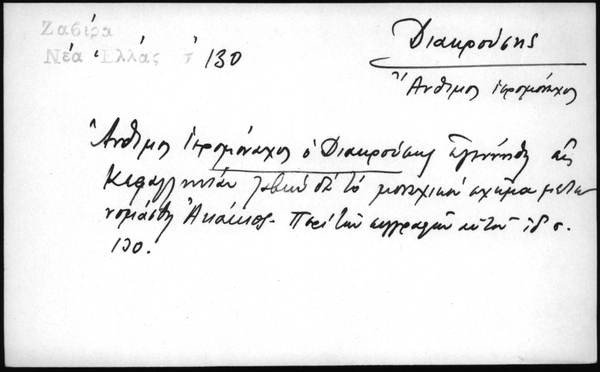 Ζαβίρα
Νέα Ἑλλάς σ 130
Διακρούσης
Ἄνθιμος ἱερομόναχος
Ἄνθιμος ἱερομόναχος ὁ Διακρούσης ἐγεννήθη εἰς
Κεφαλληνίαν λαβὼν δὲ τὸ μοναχικὸν σχῆμα μετω
νομάσθη Ἀκάκιος. Περὶ τῶν συγγραφῶν αὐτοῦ ἰδ σ.
130.